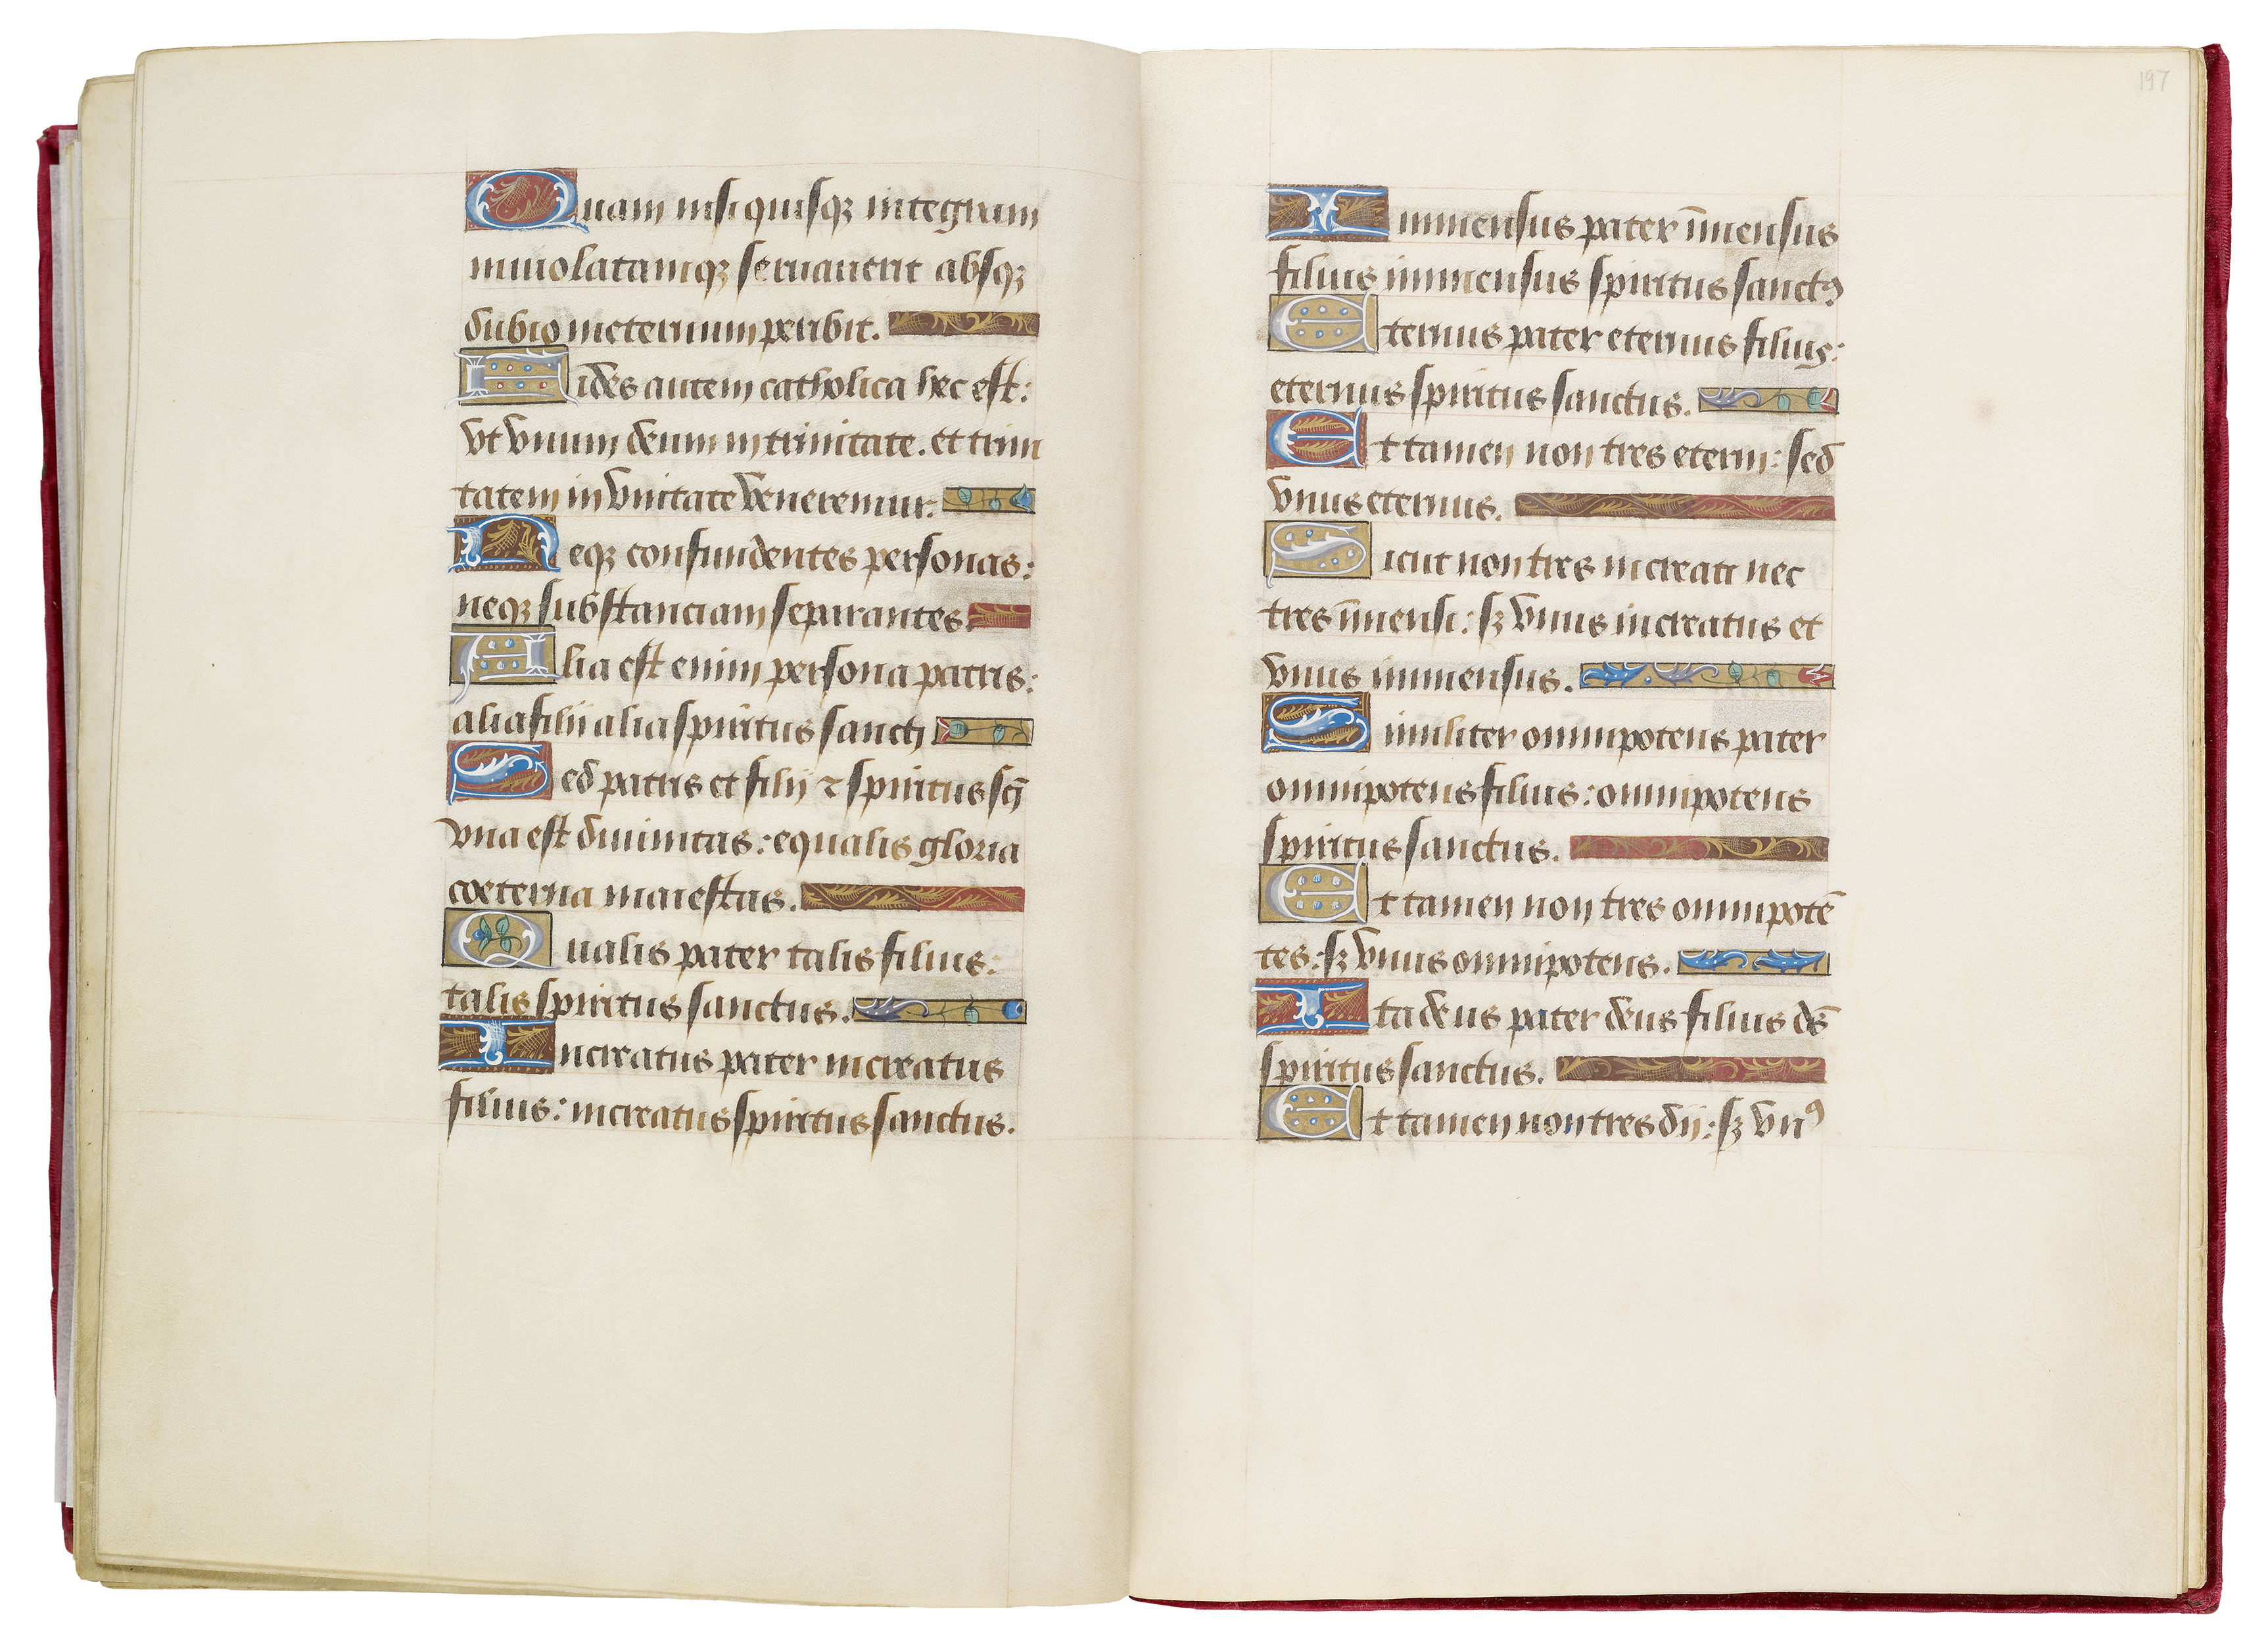 Quam nisi quisqꝫ integram
inuiolatamqꝫ seruauerit absqꝫ
dubio ineternum peribit.
Fides autem catholica hec est:
vt vnum deum in trinitate. et trini
tatem in vnitate veneremur.
Neqꝫ confundentes personas:
neqꝫ substanciam separantes.
Alia est enim persona patris:
alia filii alia spiritus sancti
Sed patris et filij ⁊ spiritus sc̄i
vna est diuinitas: equalis gloria
coeterna maiestas.
Qualis pater talis filius:
talis spiritus sanctus.
Increatus pater increatus
filius: increatus spiritus sanctus.
197
Immensus pater īmensus
filius immensus spiritus sanctꝰ
Eternus pater eternus filius:
eternus spiritus sanctus.
Et tamen non tres eterni: sed
vnus eternus.
Sicut non tres increati nec
tres īmensi: sꝫ vnus increatus et
vnus immensus.
Similiter omnipotens pater
omnipotens filius: omnipotens
spiritus sanctus.
Et tamen non tres omnipotē
tes: sꝫ vnus omnipotens.
Ita deus pater deus filius de᷒
spiritus sanctus.
Et tamen non tres dij: sꝫ vnꝰ